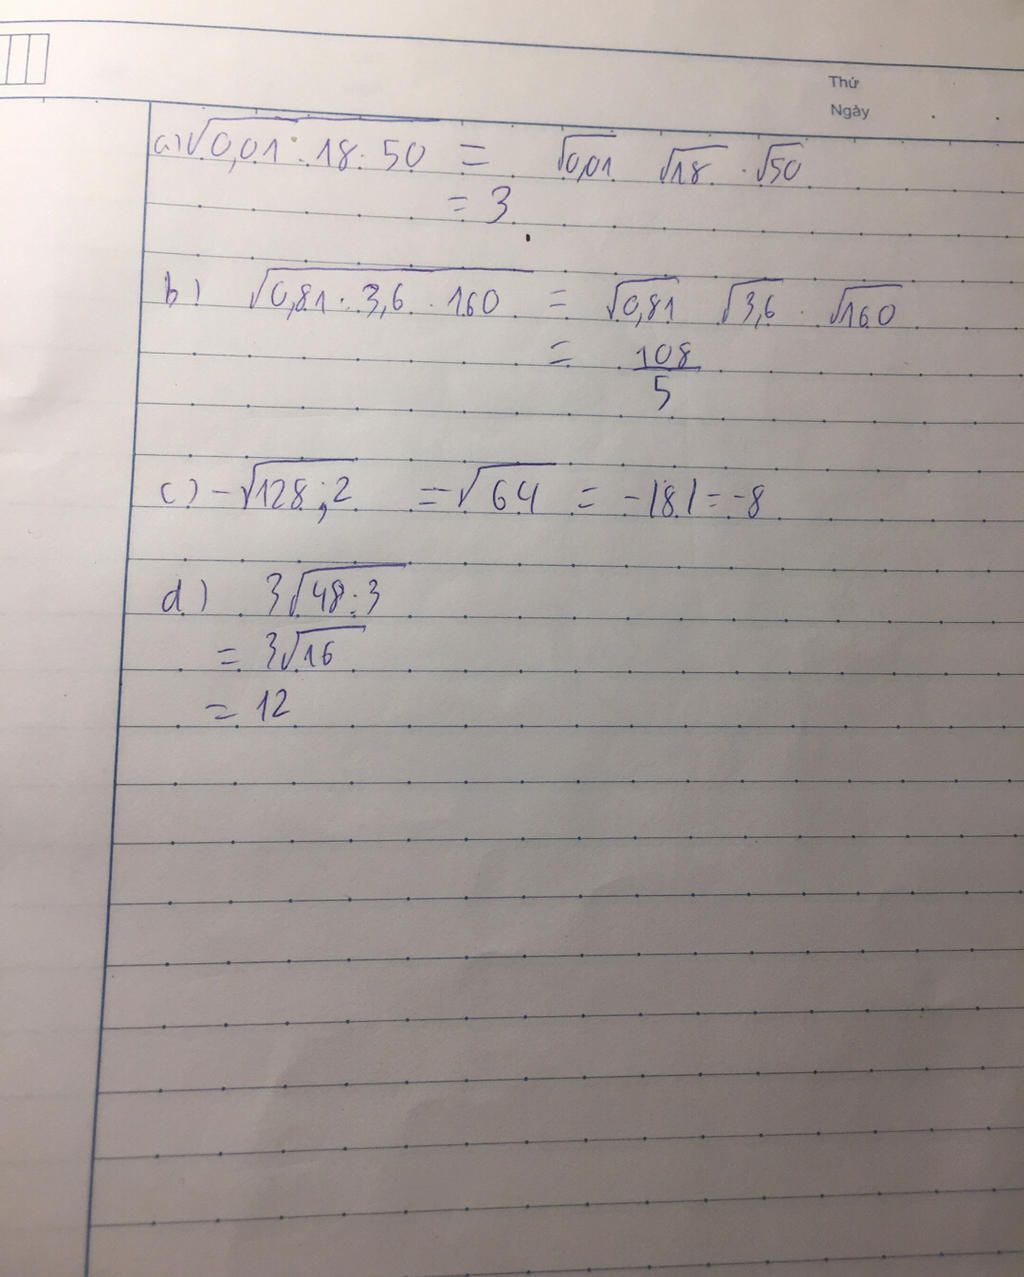 Thứ
Ngày
a) √0,01 . 18 . 50 = √0,01 √18 . √50
= 3
b) √0,81 . 3,6 . 160 = √0,81 √3,6 . √160
= 108/5
c) -√128 : 2 = -√64 = -|8| = -8
d) 3√48 : 3
= 3√16
= 12